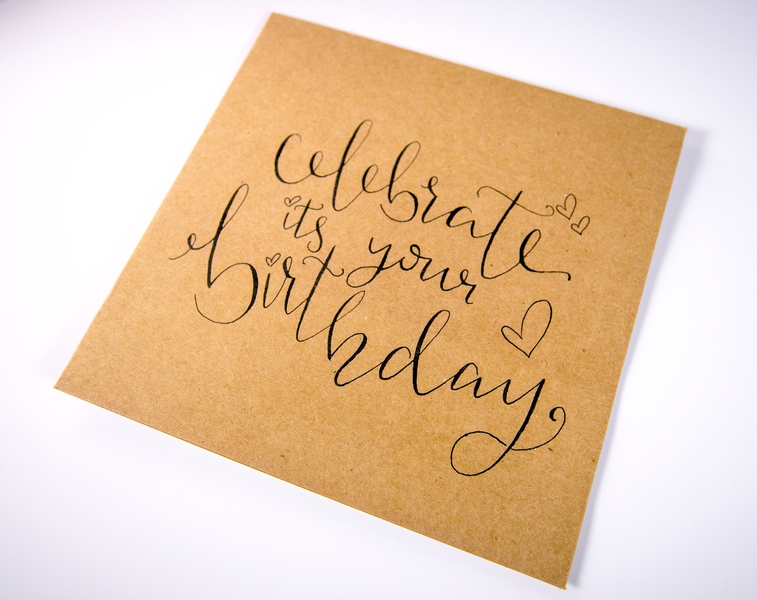 celebrate
its your
birthday